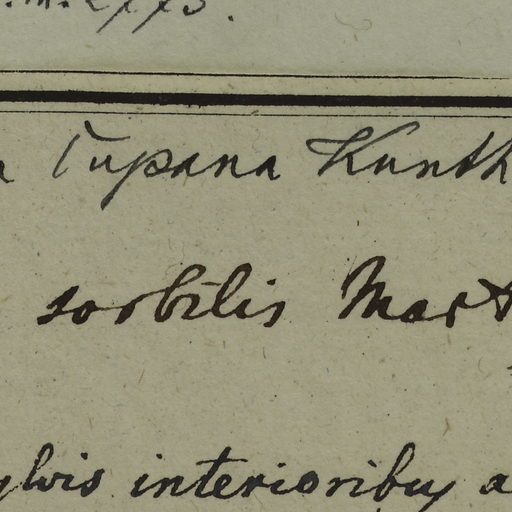 Cupana Kunth
sorbilis Mart
ylvis interioribus a